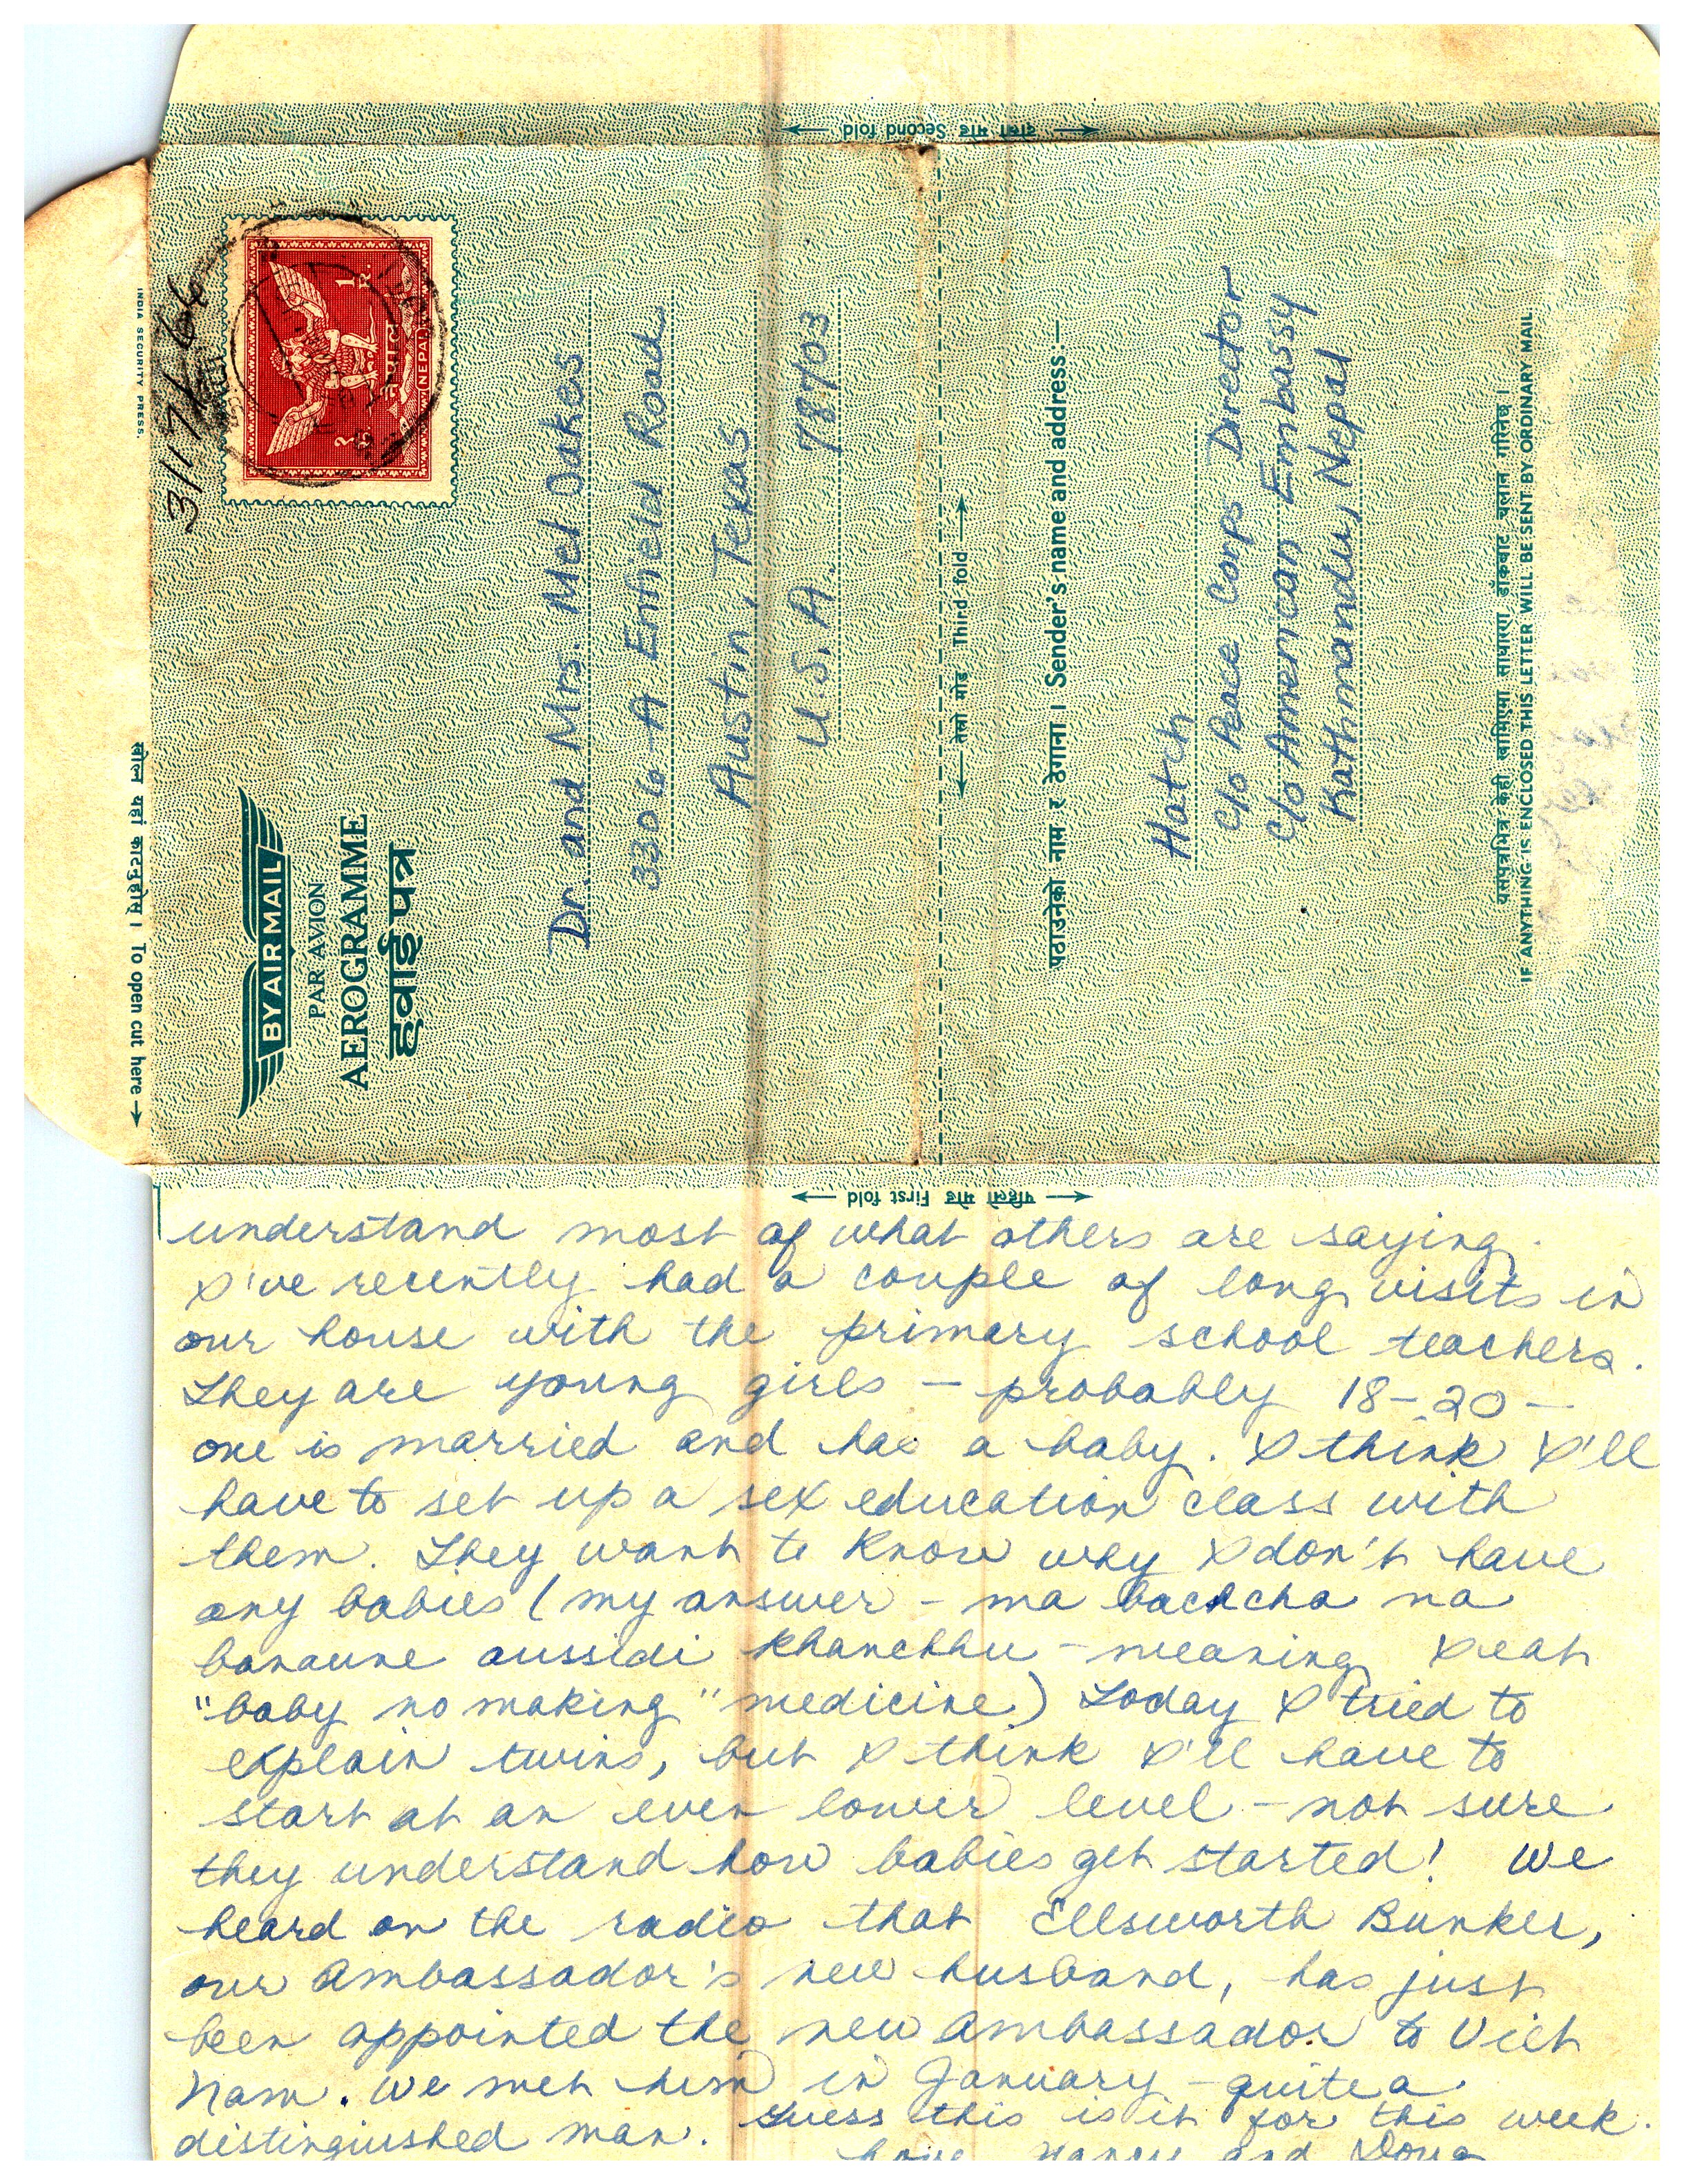 दोस्रो मोड Second fold
3/17/66
INDIA SECURITY PRESS.
नेपाल
(NEPAL)
1
R.
१
रु.
खोल्न यहां काट्नुहोस् । To open cut here →
BY AIR MAIL
PAR AVION
AEROGRAMME
हवाई पत्र
Dr. and Mrs. Mel Oakes
3306 A Enfield Road
Austin, Texas
U.S.A. 78703
← तेस्रो मोड Third fold →
पठाउनेको नाम र ठेगाना । Sender's name and address:—
Hatch
c/o Peace Corps Director
c/o American Embassy
Kathmandu, Nepal
यसपत्रभित्र केही खामिएमा साधारण डाँकबाट चलान गरिनेछ ।
IF ANYTHING IS ENCLOSED THIS LETTER WILL BE SENT BY ORDINARY MAIL
पहिलो मोड First fold
understand most of what others are saying.
I've recently had a couple of long visits in
our house with the primary school teachers.
They are young girls — probably 18-20 —
one is married and has a baby. I think I'll
have to set up a sex education class with
them. They want to know why I don't have
any babies (my answer - ma bachcha na
banaune aussidi khanchhu - meaning I eat
"baby no making" medicine) Today I tried to
explain twins, but I think I'll have to
start at an even lower level - not sure
they understand how babies get started! We
heard on the radio that Ellsworth Bunker,
our Ambassador's new husband, has just
been appointed the new Ambassador to Viet
Nam. We met him in January - quite a
distinguished man. Guess this is it for this week.
Love Nancy and Doug